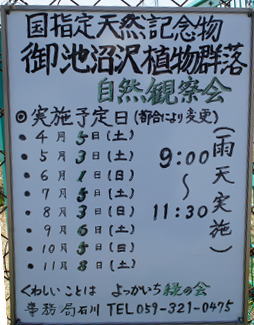 国指定天然記念物
御池沼沢植物群落
自然観察会
◉実施予定日(都合により変更)
●4月5日(土)
●5月3日(土)
●6月1日(日)
●7月5日(土)
●8月3日(日)
●9月6日(土)
●10月5日(日)
●11月8日(土)
9:00
～
11:30
(雨天実施)
くわしいことは よっかいち緑の会
事務局石川 TEL059-321-0475